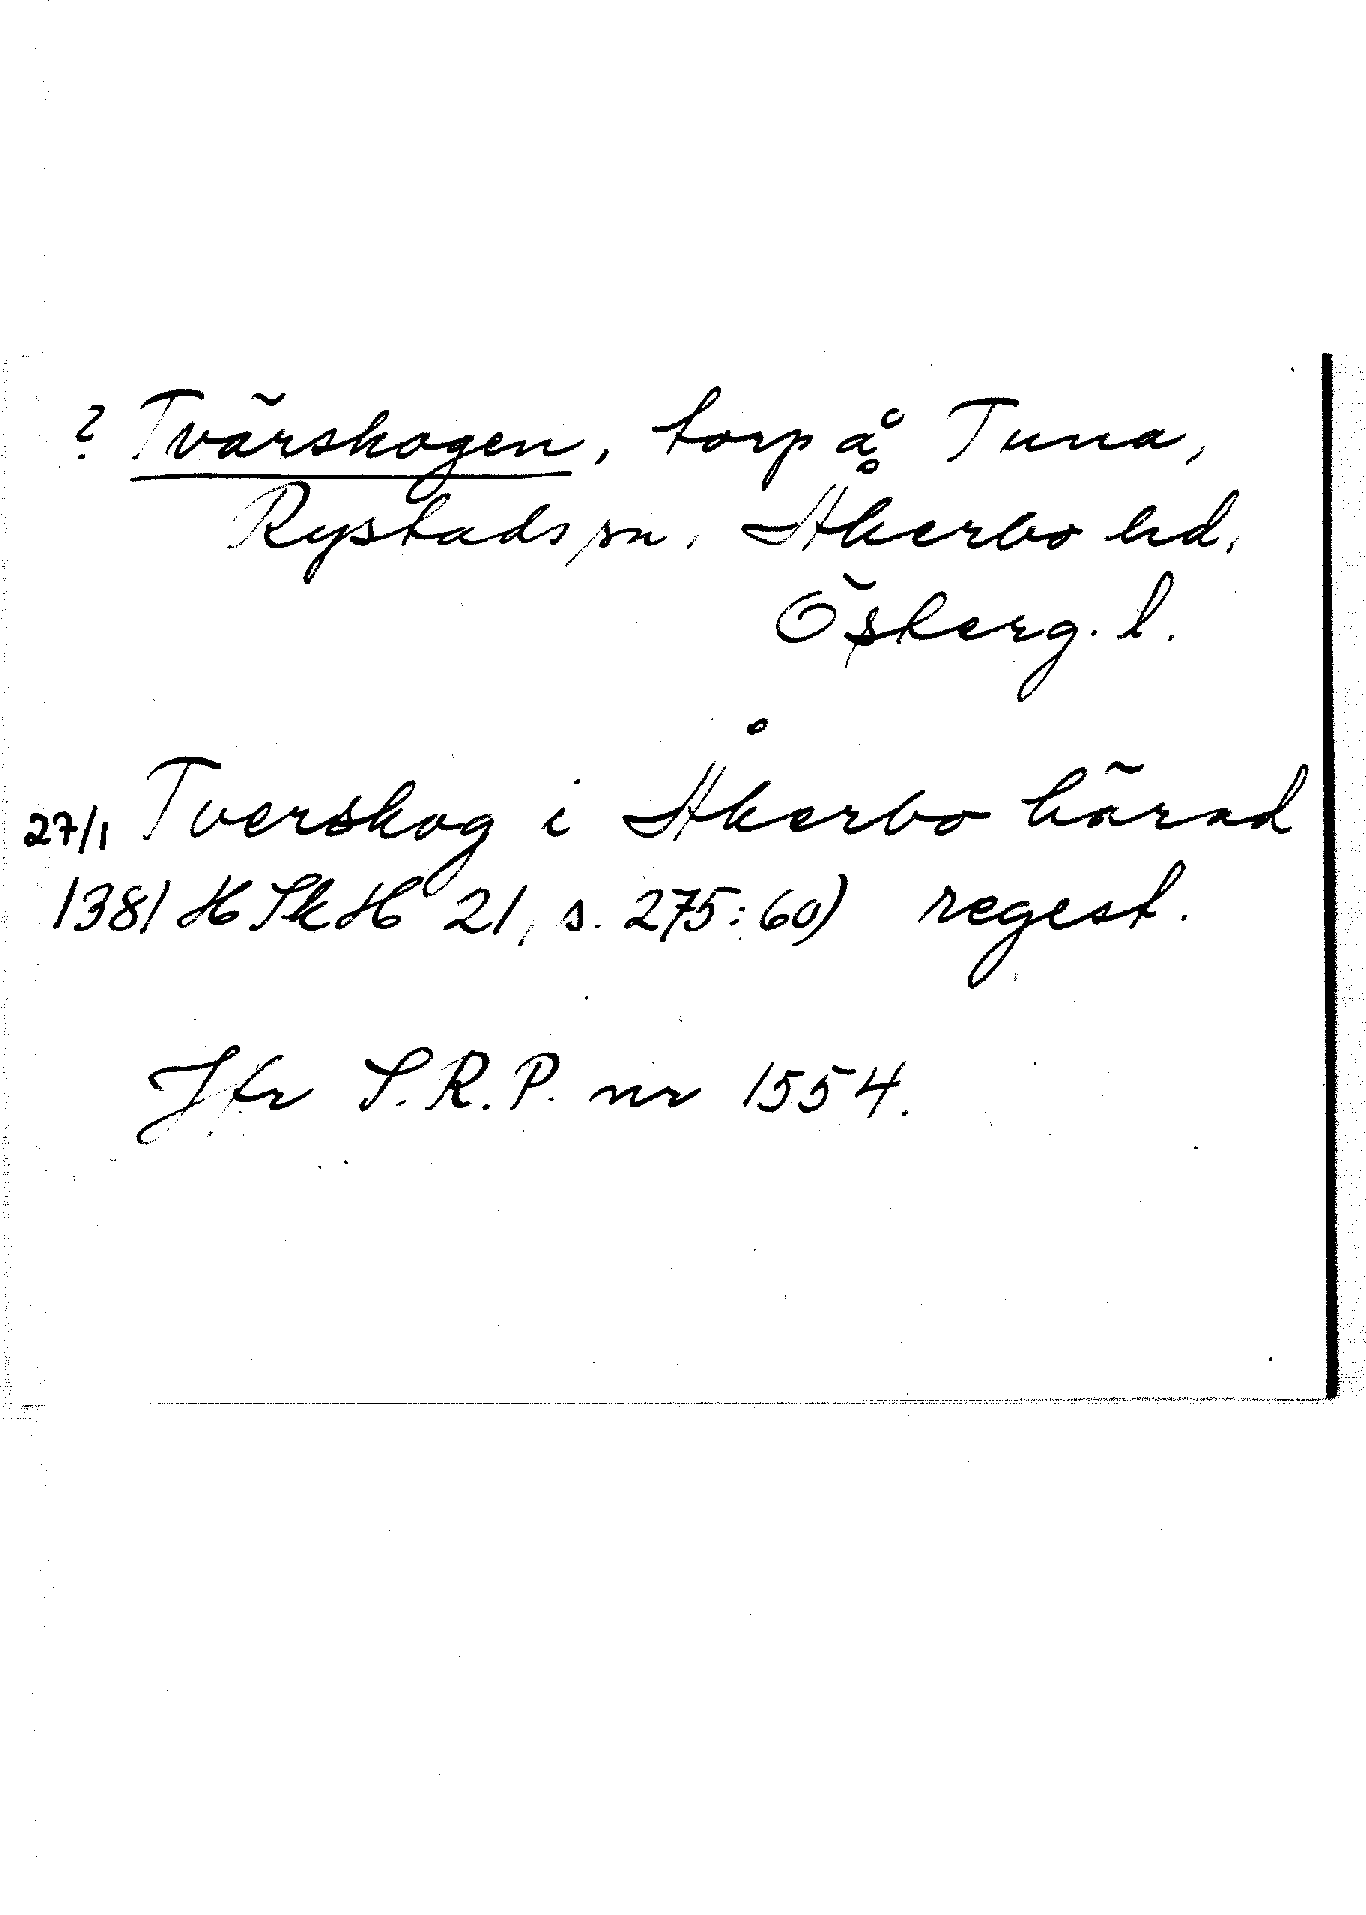 ? Tvärskogen, torp å Tuna,
Rystads sn, Åkerbo hd,
Österg. l.
27/1 Tverskog i Åkerbo härad
1381 HSkH 21, s. 275:60) regest.
Jfr S.R.P. nr 1554.